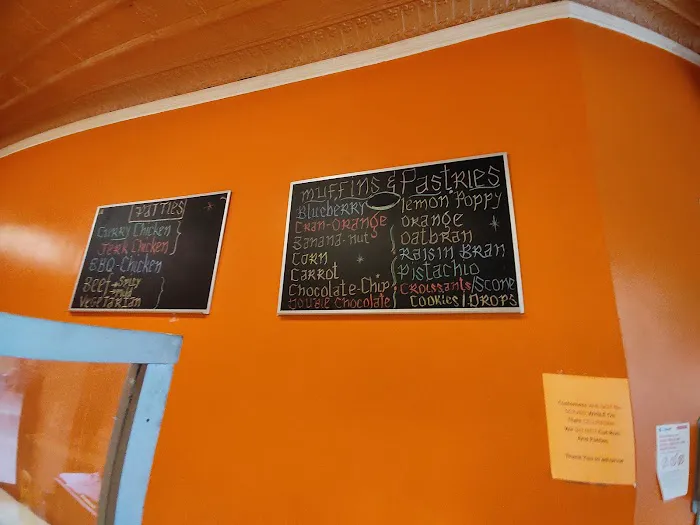 PATTIES
Curry Chicken
Jerk Chicken
BBQ-Chicken
Beef Spicy
Mild
Vegetarian
Muffins & Pastries
Blueberry
Cran-Orange
Banana-nut
Corn
Carrot
Chocolate-Chip
Double Chocolate
Lemon Poppy
Orange
Oatbran
Raisin Bran
Pistachio
Croissants/Scone
Cookies/Drops
Customers
Thank You in advance